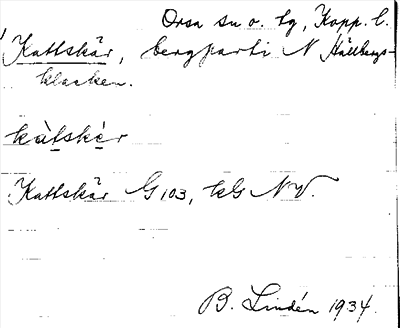 Orsa sn o. tg, Kopp. l.
Kattskär, bergparti N Hållbergs-
klacken.
kàtskér
Kattskär G 103, kG NV.
B. Lindén 1934.